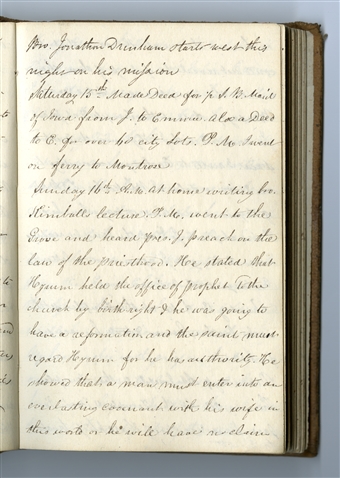 Bro. Jonathan Dunham starts west this
night on his mission
Saturday 15th Made Deed for ½ S. B. Maid
of Iowa from J. to Emma. Also a Deed
to E. for over 60 city lots. P.M. I went
on ferry to Montrose
Sunday 16th. A.M. at home writing bro.
Kimballs lecture. P.M. went to the
Grove and heard pres. J. preach on the
law of the priesthood. He stated that
Hyrum held the office of prophet to the
church by birth right & he was going to
have a reformation and the saints must
regard Hyrum for he has authority. He
showed that a man must enter into an
everlasting covenant with his wife in
this world or he will have no claim